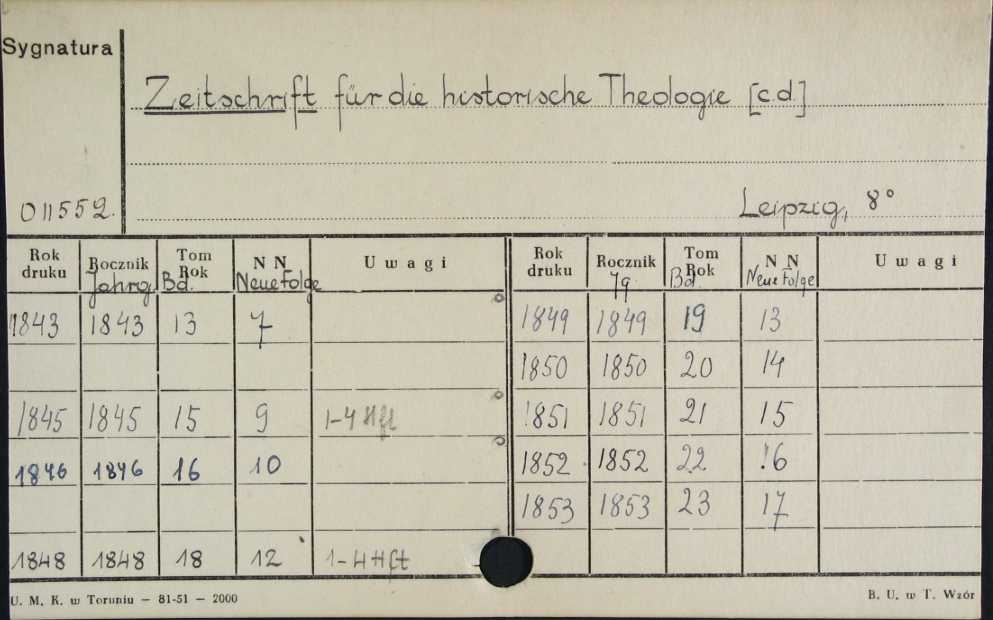 Sygnatura
Zeitschrift für die historische Theologie [c.d.]
011552.
Leipzig, 8°
Rok druku Rocznik Jahrg. Tom Rok Bd. N N Neue Folge Uwagi Rok druku Rocznik Jg Tom Rok Bd. N N Neue Folge Uwagi
1843 1843 13 7 1849 1849 19 13
1850 1850 20 14
1845 1845 15 9 1-4 Hft 1851 1851 21 15
1846 1846 16 10 1852 1852 22 16
1853 1853 23 17
1848 1848 18 12 1-4 Hft
U. M. K. w Toruniu — 81-51 — 2000 B. U. w T. Wzór